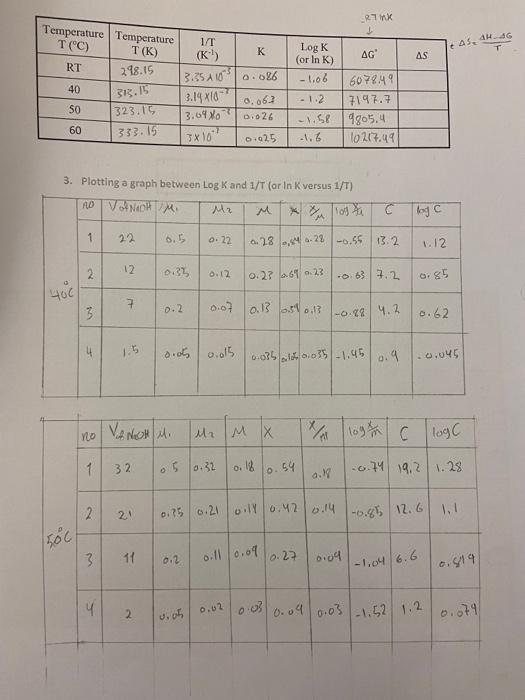 -RT lnK
Temperature T (°C) Temperature T (K) 1/T (K⁻¹) K Log K (or ln K) ΔG° ΔS
* ΔS = ΔH-ΔG / T
RT 298.15 3.35 x 10⁻³ 0.086 -1.06 6078.49
40 313.15 3.19 x 10⁻³ 0.063 -1.2 7197.7
50 323.15 3.09 x 10⁻³ 0.026 -1.58 9805.4
60 333.15 3 x 10⁻³ 0.025 -1.6 10217.49
3. Plotting a graph between Log K and 1/T (or ln K versus 1/T)
40°C
no V of NaOH M₁ M₂ M X X/m log X/m C log C
1 22 0.5 0.22 0.28 0.84 0.28 -0.55 13.2 1.12
2 12 0.35 0.12 0.23 0.69 0.23 -0.63 7.2 0.85
3 7 0.2 0.07 0.13 0.13 -0.88 4.2 0.62
4 1.5 0.05 0.015 0.035 0.105 0.035 -1.45 0.9 -0.045
50°C
no V of NaOH M₁ M₂ M X X/m log X/m C log C
1 32 0.5 0.32 0.18 0.54 0.18 -0.74 19.2 1.28
2 21 0.35 0.21 0.14 0.42 0.14 -0.85 12.6 1.1
3 11 0.2 0.11 0.09 0.27 0.09 -1.04 6.6 0.819
4 2 0.05 0.02 0.03 0.09 0.03 -1.52 1.2 0.079